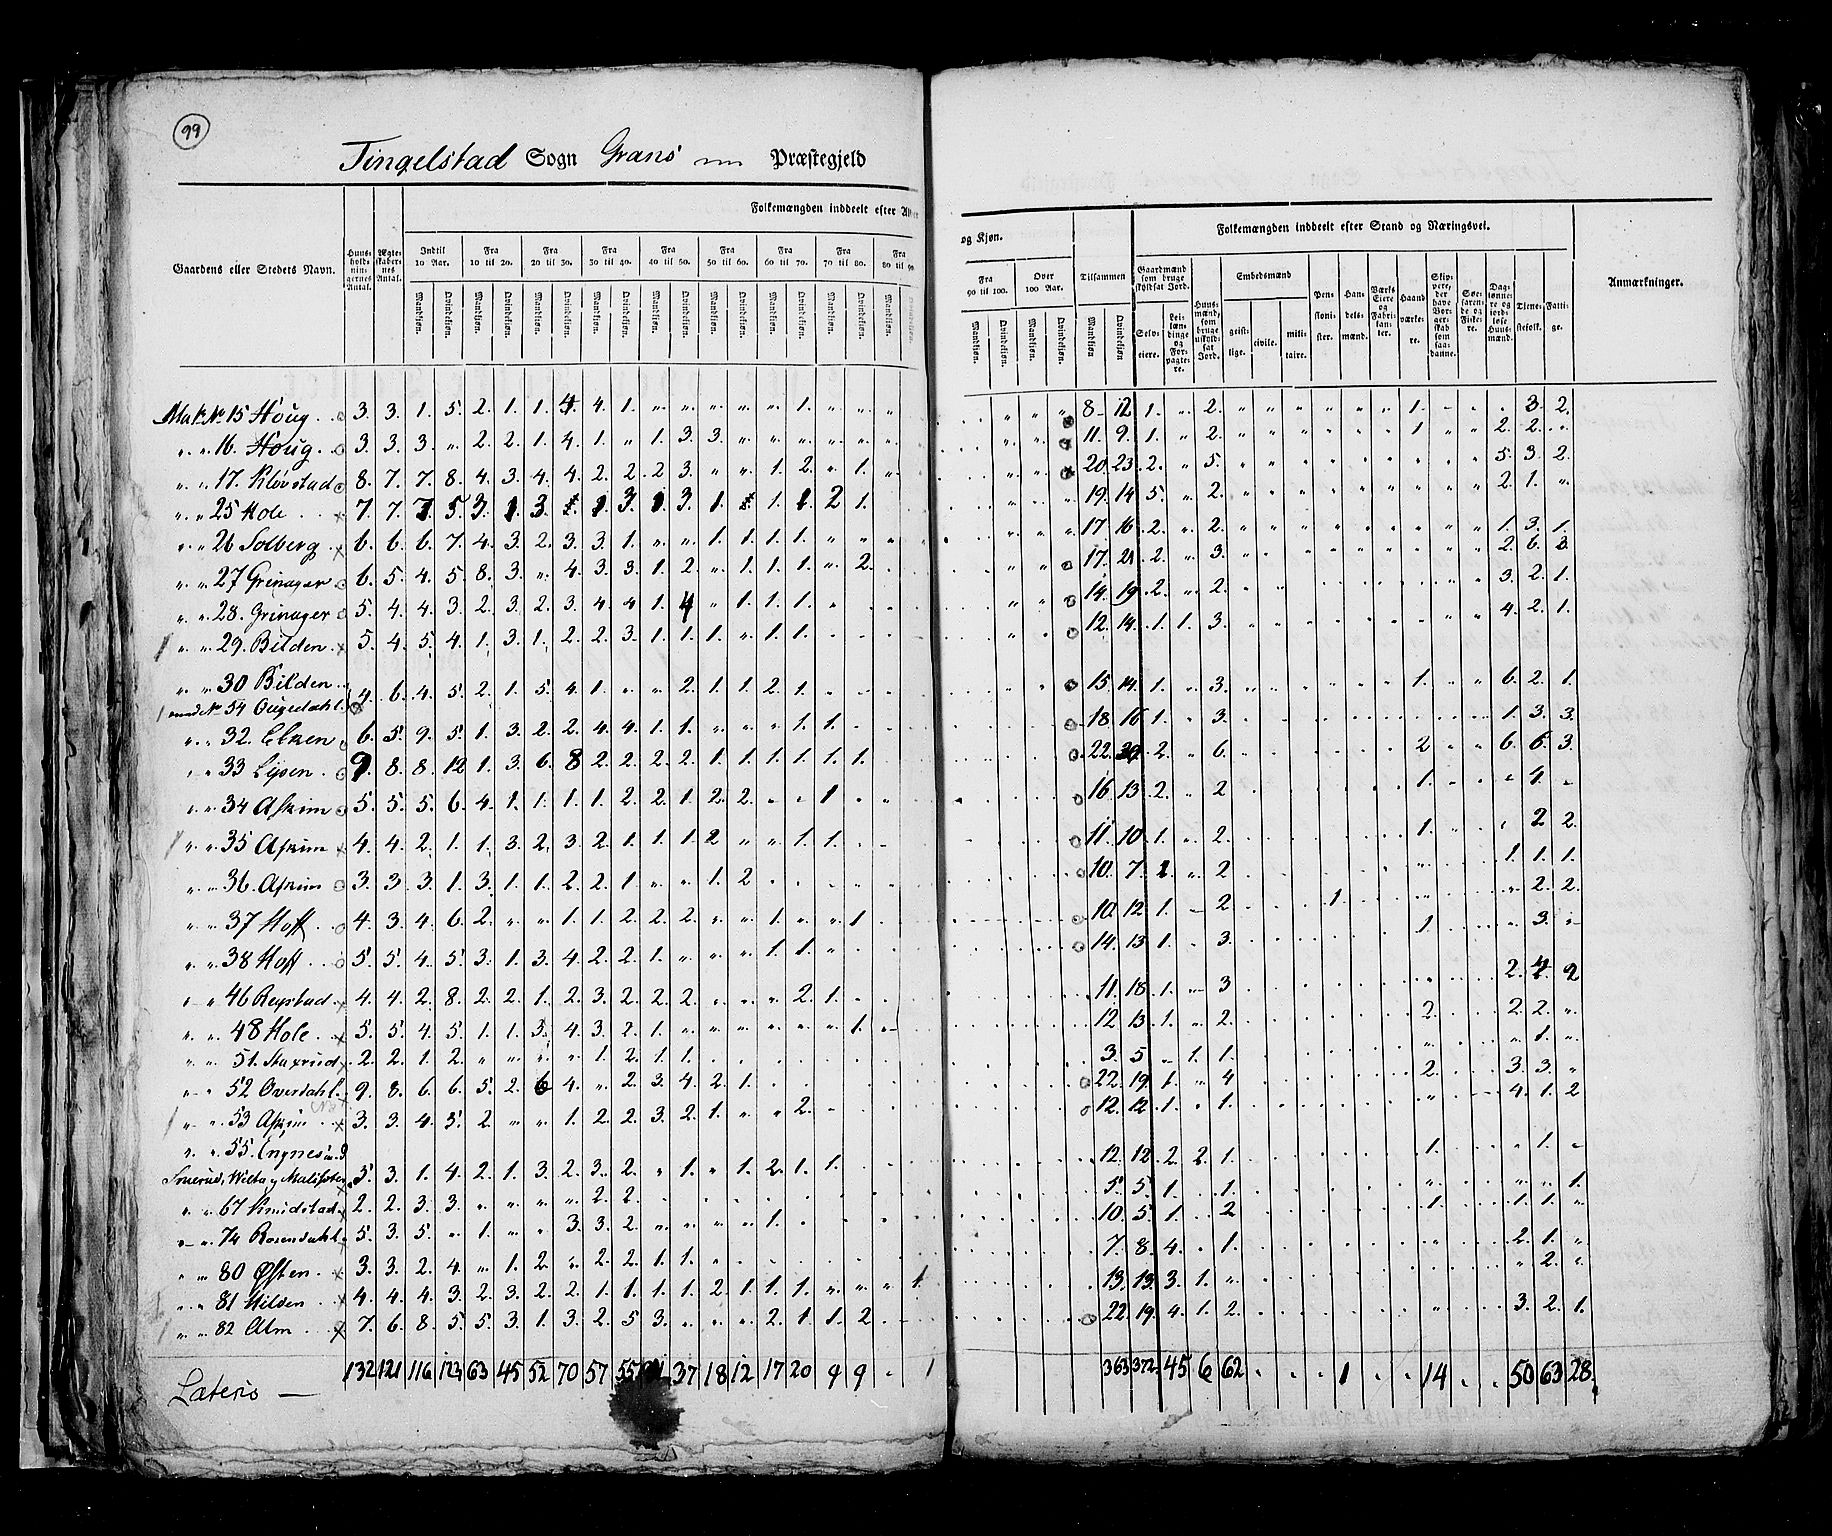 99
Tingelstad Sogn Grans Præstegjeld
Folkemængden inddeelt efter Alder
og Kjøn.
Folkemængden inddeelt efter Stand og Næringsvei.
Gaardens eller Stedets Navn.
Huusholdningernes Antal.
Ægteskabernes Antal.
Indtil 10 Aar.
Fra 10 til 20.
Fra 20 til 30.
Fra 30 til 40.
Fra 40 til 50.
Fra 50 til 60.
Fra 60 til 70.
Fra 70 til 80.
Fra 80 til 90
Fra 90 til 100.
Over 100 Aar.
Tilsammen
Mandkjøn. Qvindekjøn.
Gaardmænd som bruge skyldsat Jord.
Selveiere.
Leilændinge og Forpagtere.
Huusmænd, som bruge uskyldsat Jord.
Embedsmænd
geistlige. civile. militaire.
Pensionister.
Handelsmænd.
Værks Eiere og Fabrikanter.
Haandværkere.
Skippere, der have Borgerskab som saadanne.
Søefarende og Fiskere.
Daglønnere og jordløse Huusmænd.
Tjenestefolk.
Fattige.
Anmærkninger.
Matr. No 15 Houg 3. 3. 1. 5. 2. 1. 1. 4. 4. 1. 1. 8 12 1. 2. 1. 3. 2.
16. Houg 3. 3. 3. 2. 2. 1. 4. 1. 1. 3. 3. 11. 9. 1. 2. 1 2. 2.
17. Kløvstad 8. 7. 7. 8. 4. 3. 4. 4. 2. 2. 2. 3. 1. 2. 1. 20. 23. 2. 5. 5. 3. 2.
25 Hole 7. 7. 7. 5. 3. 1. 3. 1. 3. 1. 3. 1. 1. 1. 2 1. 19. 14 5. 2. 2. 1.
26 Solberg 6. 6. 6. 7. 4. 3. 2. 3. 3. 1. 1. 1. 1. 1. 17 16. 2. 2. 1. 3. 1.
27 Grinager 6. 5. 4. 5. 8. 3. 4. 3. 3. 1. 2. 1. 1. 1. 2. 17. 21. 2. 3. 2. 6. 3.
28. Grinager 5. 4. 4. 3. 2. 3. 2. 3. 4. 4 1. 4 1. 1. 1. 14. 19. 2. 2. 3. 2. 1.
29. Bilden 5. 4. 5. 4. 1. 3. 1. 2. 2. 3. 1. 1. 1. 1. 1. 12. 14. 1. 1. 3. 4. 2. 1.
30 Bilden
54
4. 6. 4. 5. 2. 1. 5. 4. 1. 2. 1. 1. 2. 1. 15. 14. 1. 3. 1. 6. 2. 1.
32. 6. 5. 9. 5. 1. 3. 2. 2. 4. 4. 1. 1. 1. 1. 18. 16 1. 3. 1. 3. 3.
33 9. 8. 8. 12 1. 3. 6. 8 2. 2. 2. 2. 1. 1. 1. 1. 1. 1. 22. 2. 6. 2 6. 6. 3.
34 Askim 5. 5. 5. 6. 4. 1. 1. 1. 1. 2. 2. 1. 2. 2. 1 16. 13. 2. 2 1.
35 Askim 4. 4. 2. 1. 1. 3. 2. 3. 2. 1. 1. 1. 2 1. 1. 11. 10. 1. 2. 1. 2 2.
36. Askim 3. 3. 3. 1. 3. 1. 1. 2. 2. 1 1. 2 10. 7. 1. 2 1. 1. 1.
37 Hoff 4. 3. 4. 6. 2. 1. 1. 2. 2. 2. 1. 1 10. 12. 1. 2. 1. 2. 2.
38 Hoff 5. 5. 4. 5. 3. 1. 3. 4. 2. 2. 1. 1. 1. 14. 13. 1. 3. 1. 3.
46 4. 4. 2. 8. 2. 2. 1. 2. 3. 2. 2. 2. 2. 1. 11. 18. 1. 3 2. 4 2
48 Hole 5. 5. 4. 5. 1. 1. 3. 4. 3. 2. 1. 1. 12 13. 1. 2. 2. 2. 2.
51. 2. 2. 1. 2. 1. 2. 1. 1. 3. 5 1. 1. 1.
52 9. 8. 6. 6. 5. 2. 6 4. 2. 3. 4. 2. 1. 22. 19. 1. 4 2. 3. 3.
53 Askim 3. 3. 4. 5. 2. 1. 2. 2. 3. 2. 1. 2. 12. 12. 1. 1. 4. 1. 2
55.
5. 3. 1. 4. 2. 1. 3. 2. 3. 2. 1. 1. 2. 1. 1. 12. 12. 2. 2. 1. 1. 1.
67 2. 2. 3. 3. 2. 2. 5. 5. 1. 1. 1.
74 Rosendahl 5. 3. 5. 1. 3. 3. 2. 1. 10. 5. 1. 2 1. 1. 1.
80 Østen 3. 3. 2. 4. 1. 2. 2. 2. 1. 1. 7. 8. 4. 1. 2. 1.
81 Hilden 4. 4. 4. 3. 2. 3. 2. 2. 1. 1. 1. 1. 2. 1. 1. 1. 1. 13. 13. 3. 1. 2.
82 Alm 7. 6. 8. 5. 5. 3. 1. 3. 2. 5 3. 2. 1. 1. 2. 22. 19. 4. 1. 2. 3. 2. 1.
Lateris 132 121 116 123 63 45 52 70 57 55 37 18 12 17 20 9 9 1 363 372 45 6 62 1 14 50 63 28